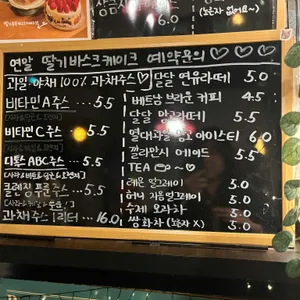 (노른자 없어요~)
연말 딸기바스크케이크 예약문의 ♡♡♡♡
과일 야채 100% 과채주스♡
비타민A주스 … 5.5
비타민C주스 … 5.5
디톡스ABC주스 … 5.5
클렌징푸룬주스 … 5.5
과채주스 1리터 … 16.0
달달 연유라떼 5.0
베트남 브라운 커피 4.5
달달 말차라떼 5.5
열대과일 망고 아이스티 6.0
깔라만시 에이드 5.5
TEA ~♡
레몬 얼그레이 5.0
허니 자몽얼그레이 5.0
수제 오과차 5.0
쌍화차 (노른자 X) 5.0